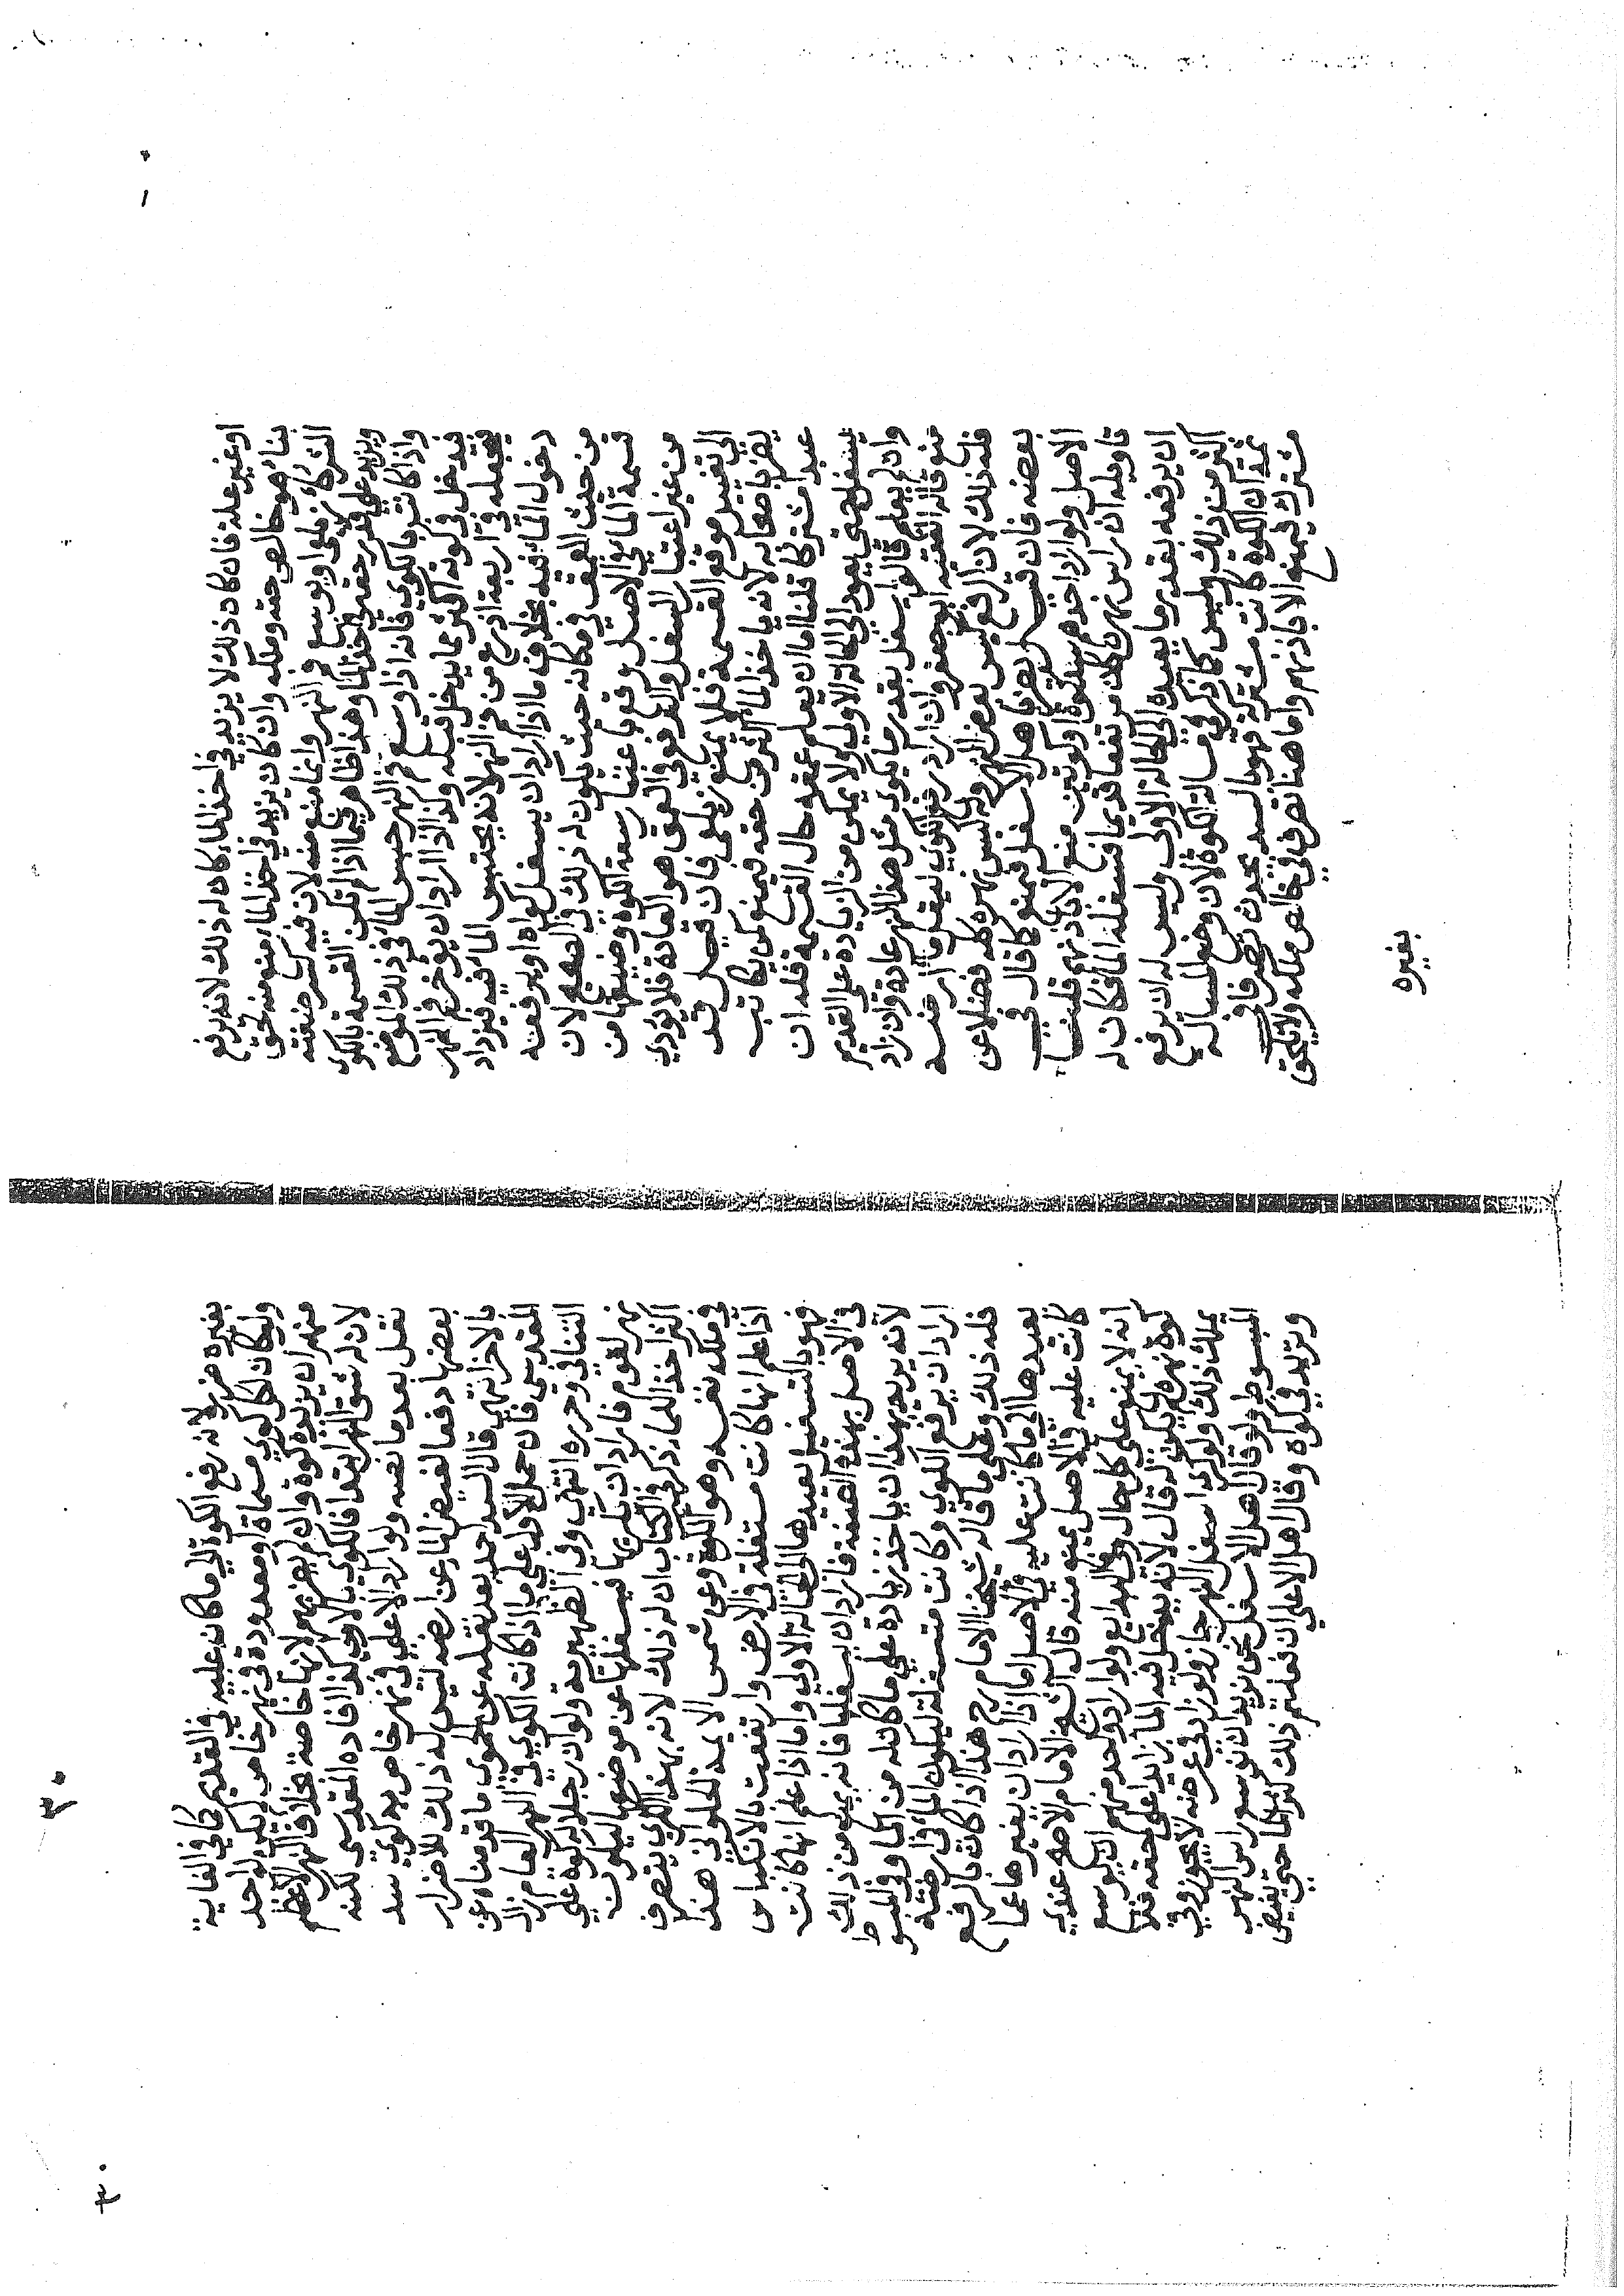 او غير علة فان كان ذلك لا يزيد في اخذ الماء كان له ذلك لانه يرفع
بناء هو خالص حقه وملكه وان كان يزيد في اخذ الماء منع منه لحق
الشركاء زيلعي او يوسع فم النهر وانما منع منه لان فيه كسر ضفته
ويزيد علي قدر حقه في اخذ الماء وهذا ظاهر فيما اذا لم تكن القسمة بالكوي
واذا كانت بالكوي فانه اذا وسع فم النهر حبس الماء في ذلك الموضع
فدخل في كوته اكثر مما يدخل قبله وكذا اذا اراد ان يؤخر فم النهر
فيجعله في اربعة اذرع من فم النهر لانه يحتبس الماء فيه فيزداد
دخول الماء فيه بخلاف ما اذا اراد ان يسفل كواه او يرفعه
من حيث العمق في مكانه حيث يكون له ذلك في الصحيح لان
قسمة الماء في الاصل وقع باعتبار سعة الكوة وضيقها من
من غير اعتبار السفل والترفع في العمق هو العادة فلا يؤدي
الي تغيير موقع القسمة فلا يمنع زيلعي فان قيل قد
يضر باصحابه لانه ياخذ الماء اكثر من حقه فيمنع كمن كاتب
عبدا مشتركا قلنا اما ان يعلم عمقه حال القسمة فله ان
يسفل حتي يعود الي الحالة الاولي ولا يمكن من الزيادة علي القديم
وان لم يعلم قالوا يسفل بقدر ما يكري مثل هذا النهر عادة وان زاد
منع قاله الفقيه ابو جعفر وان اراد رفع الكوي ليقل ماء ارضه
فله ذلك لان الرفع ليس بعض النهر وله كبس نهره كله فضلا عن
بعضه فان قيل يضر باهل الاسفل فيمنع كما قال في
الاصل ولو اراد احدهم سد كوة او كوتين منع الا باذنهم قلنا
تاويله ان راس نهره كان مرتفعا قديما فسفله الماء فكان له
ان يرفعه بقدر ما يعيده الي الحالة الاولي وليس له ان يرفع
اكثر من ذلك وليس كما ذكر في مسالة الكوة لان وضع المسالة
ثمة ان الكوة كانت مشتركة فهو بالسد يحدث تصرفا في
مشترك فيمنع الا باذنهم واما هنا تصرف في خالص ملكه ولا تلحق
بغيره
بغيره ضررا لانه رفع الكوة الي ما كان عليه في القديم كما في الغاية
ولو كان لكل كوي مسماة او معدودة في نهر خاص لم يكن لواحد
منهم ان يزيد كوة وان لم يضر بهم لانها خاصة بخلاف النهر الاعظم
لان له شق النهر ابتداء فالكوي بالاولي كذا افاده المقدسي لكنه
نقل بعد ما نصه ولو اراد الاعلي في نهر خاص به كوي سد
بعضها دفعا لفيض الماء عن ارضه ليس له ذلك للاضرار
بالاخر انتهي قال السيد احمد بعد نقله عن الحموي ما قدمناه عن
المقدسي فان حمل الاول علي ما اذا كانت الكوي في النهر العام زال
التنافي وحرره انتهي وفي الظهيرية ولو ان رجلا له كوة علي
نهر لقوم فاراد ان يكريها فيسفلها عن موضعها ليكون
اكثر اخذا للماء ذكر في الكتاب ان له ذلك لانه بهذا الكري يتصرف
في ملك نفسه وهو الكوة وعن شمس الايمة الحلواني هذا
اذا علم انها كانت مستفلة في الارض وارتفعت بالانكباس
فهو بالتسفيل يعيدها الي الحالة الاولي واما اذا علم انها كانت
في الاصل بهذه الصفة فاراد ان يسفلها فانه يمنع من ذلك
لانه يريد بهذا ان ياخذ زيادة علي ما كان له من الماء وفي المبسوط
اراد ان يرفع الكوي وكانت متسفلة ليكون الماء في ارضه
فله ذلك وعلي ما قاله شيخنا الامام رح هذا اذا كان بالرفع
يعيدها الي ما كانت عليه في الاصل اما اذا اراد ان يغيرها عما
كانت عليه في الاصل يمنع منه قال الشيخ الامام الاصح عندي
انه لا يمنع علي كل حال وفي البدايع ولو اراد واحد منهم ان يوسع
كوة نهره لم يكن له قال لانه يدخل فيه الماء زايدا علي حقه فلا
يملك ذلك ولو كري اسفل النهر جاز ولو زاد في عرضه لا يجوز وفي
المبسوط ولو قال اهل الاسفل نحن نريد ان نوسع راس النهر
ونزيد في كوه وقال اهل الاعلي ان فعلتم ذلك كثر الماء حتي يفيض